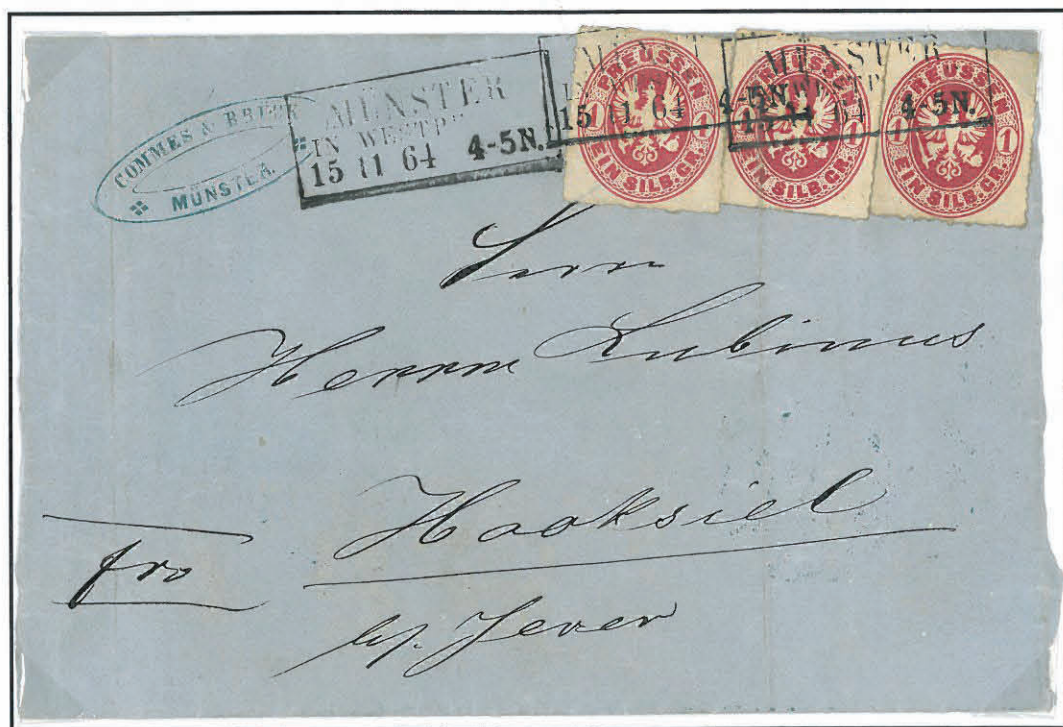 COMMES &
MÜNSTER.
MÜNSTER
IN WESTP"
15 11 64 4-5N.
MÜNSTER
15 11 64 4-5N.
MÜNSTER
WESTP
15 11 64 4-5N.
PREUSSEN
1 1
EIN SILB.GR.
PREUSSEN
1 1
EIN SILB.GR.
PREUSSEN
1 1
EIN SILB.GR.
Herrn
Hermm Lubinus
Hooksiel
fro
by. Jever